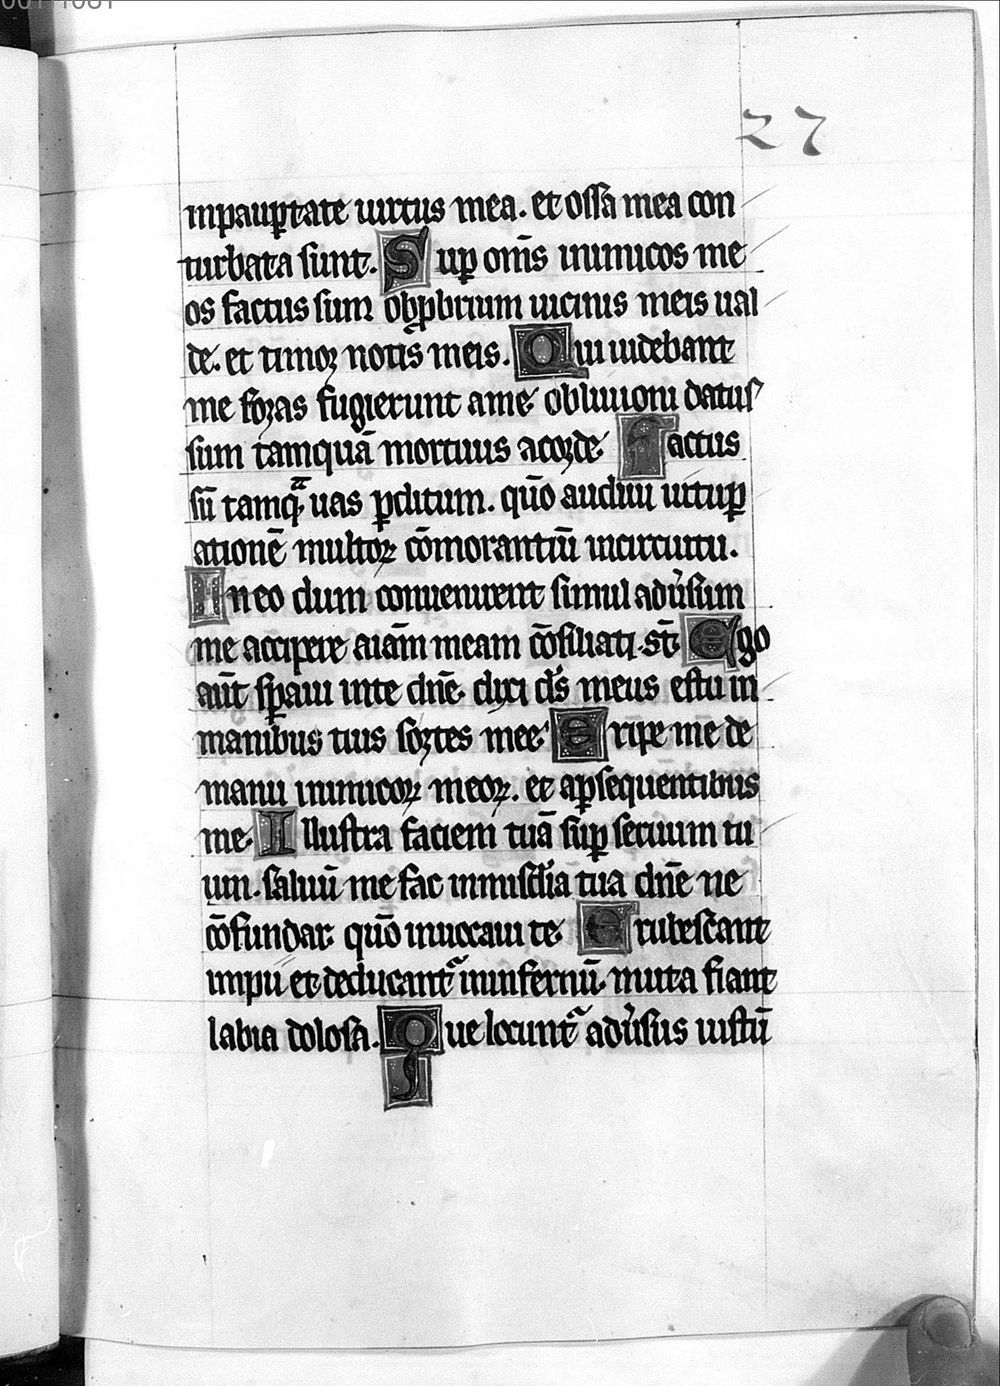 27
inpaup̄tate uirtus mea. et ossa mea con
turbata sunt. Sup̄ om̄s inimicos me
os factus sum obp̄brium uicinis meis ual
de. et timor notis meis. Qui uidebant
me foras fugierunt ame obliuioni datus
sum tamquā mortuus acorde. Factus
sū tamqͣ uas p̄ditum. qūo audiui uitup̄
ationē multoꝝ cōmorantiū incircuitu.
In eo dum conuenirent simul adu̾sum
me accipere aiām meam cōsiliati st̄. Ego
aūt sp̄aui inte dn̄e. dixi ds̄ meus es tu in
manibus tuis sortes mee. Eripe me de
manu inimicoꝝ meoꝝ. et ap̄sequentibus
me. Illustra faciem tuā sup̄ seruum tu
um. saluū me fac inmisc̄dia tua dn̄e ne
cōfundar. qūo inuocaui te. Erubescant
impii et deducant᷑ ininfernū. muta fiant
labia dolosa. Que locunt᷑ adu̾sus iustū